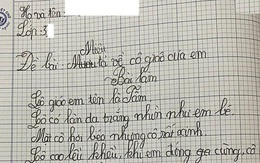 Họ và tên:
Lớp: 3
Đề bài: Mượn tả về cô giáo của em
Bài làm
Cô giáo em tên là Tâm
Cô có làn da trắng nhìn như em bé.
Mắt cô hơi béo nhưng cô rất xanh.
Cô cao kều khều, khi em đứng gần cũng, cô